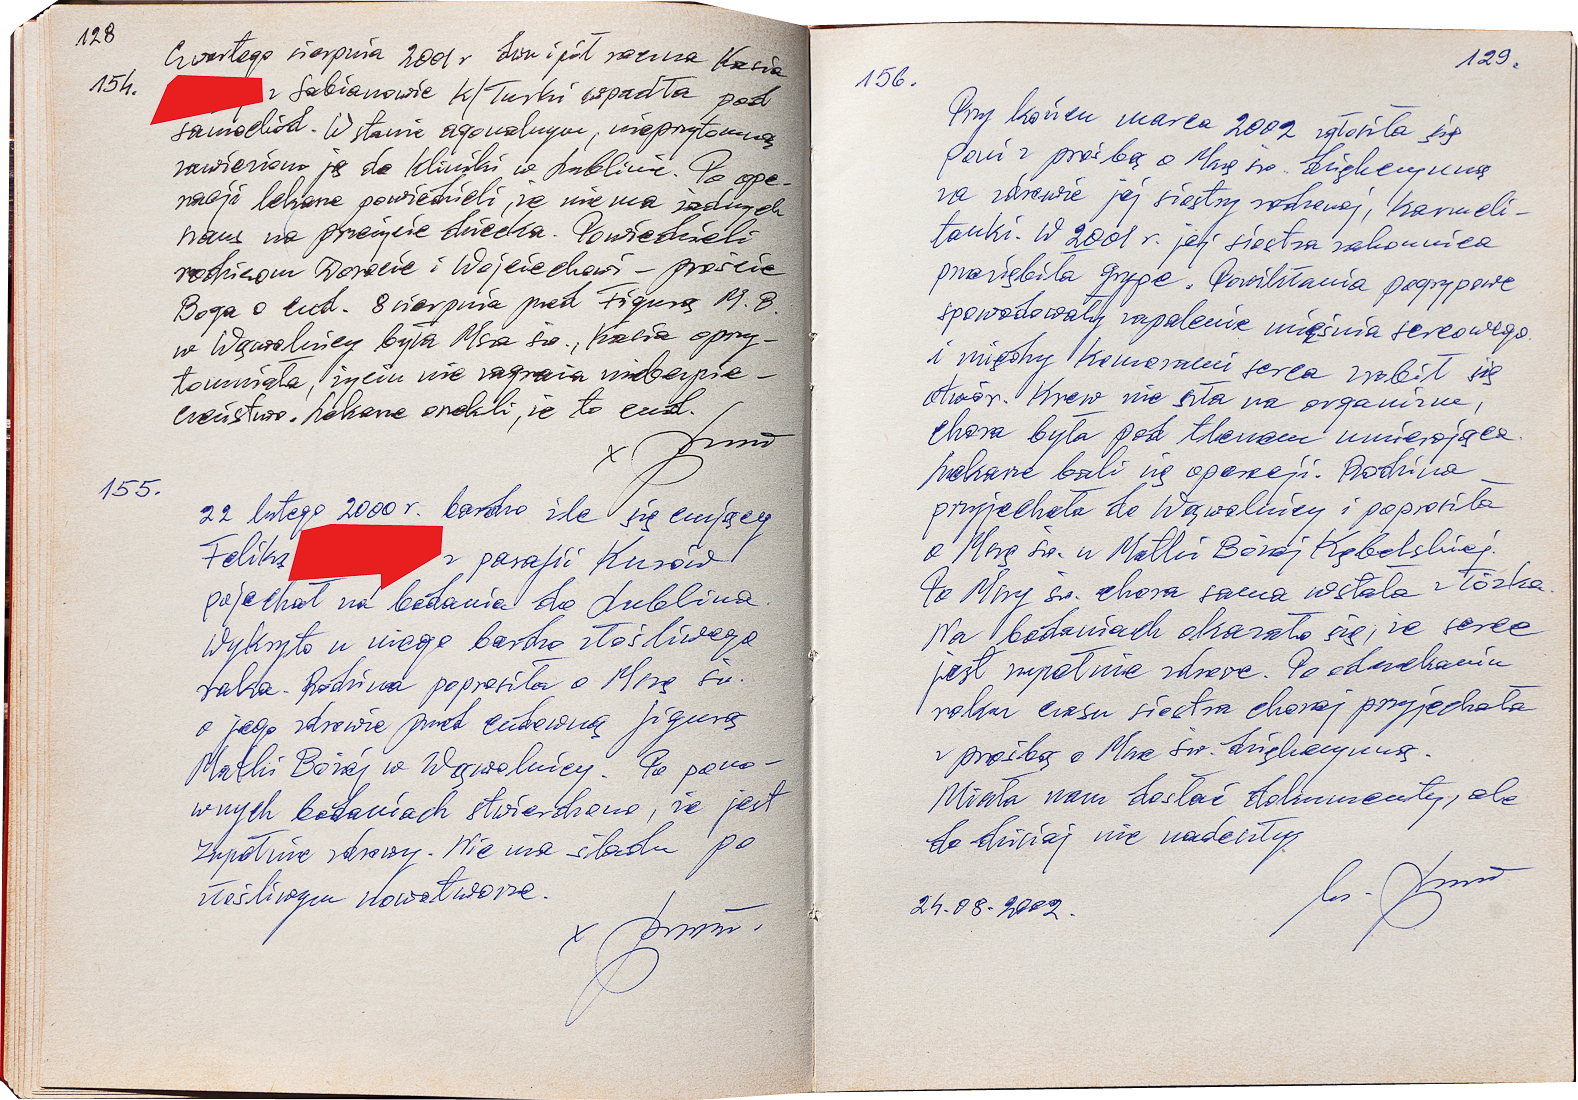 128
154.
Czwartego sierpnia 2001 r dwu i pół roczna Kasia
z Sabianowie K/Turki wpadła pod
samochód. W stanie agonalnym, nieprzytomną
zawieziono ją do Kliniki w Lublinie. Po ope-
racji lekarze powiedzieli, że nie ma żadnych
szans na przeżycie dziecka. Powiedzieli
rodzicom Dorocie i Wojciechowi – proście
Boga o cud. 8 sierpnia przed Figurą M. B.
w Wąwolnicy była Msza św., Kasia oprzy-
tomniała, życiu nie zagraża niebezpie-
czeństwo. Lekarze orzekli, że to cud.
x
155.
22 lutego 2000 r. bardzo źle się czujący
Feliks
z parafii Kurów
pojechał na badania do Lublina.
Wykryto u niego bardzo złośliwego
raka. Rodzina poprosiła o Mszę św.
o jego zdrowie przed cudowną figurą
Matki Bożej w Wąwolnicy. Po pono-
wnych badaniach stwierdzono, że jest
zupełnie zdrowy. Nie ma śladu po
złośliwym nowotworze.
x
129.
156.
Przy końcu marca 2002 zgłosiła się
Pani z prośbą o Mszę św. dziękczynną
za zdrowie jej siostry rodzonej, Karmeli-
tanki. W 2001 r. jej siostra zakonnica
przeziębiła grypę. Powikłania pogrypowe
spowodowały zapalenie mięśnia sercowego
i między komorami serca zrobił się
otwór. Krew nie szła na organizm,
chora była pod tlenem umierająca.
Lekarze bali się operacji. Rodzina
przyjechała do Wąwolnicy i poprosiła
o Mszę św. u Matki Bożej Kębelskiej.
Po Mszy św. chora sama wstała z łóżka.
Na badaniach okazało się, że serce
jest zupełnie zdrowe. Po odczekaniu
roku czasu siostra chorej przyjechała
z prośbą o Msza św. dziękczynną.
Miała nam dosłać dokumenty, ale
do dzisiaj nie nadeszły.
24.08.2002.
ks.